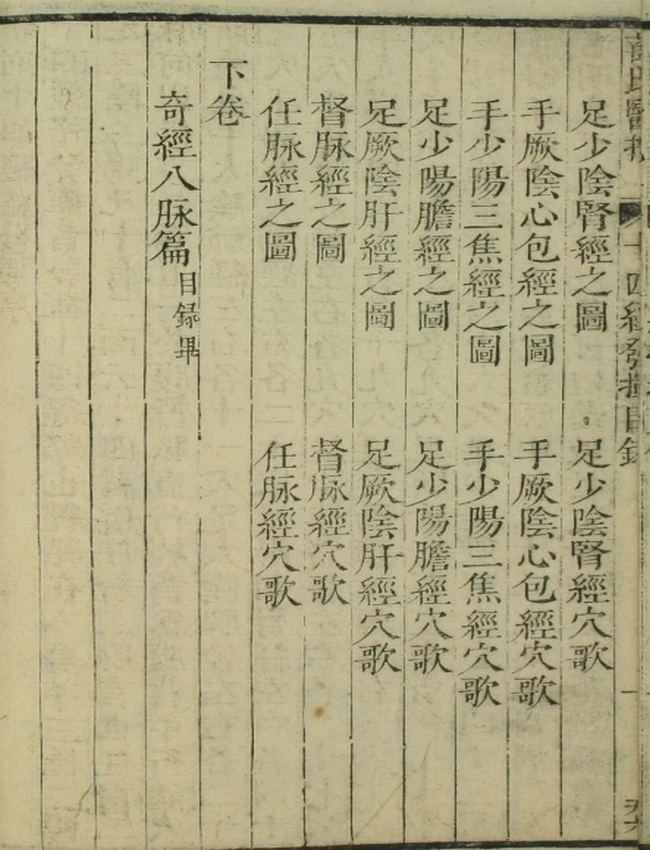 足少陰腎經之圖 足少陰腎經穴歌
手厥陰心包經之圖 手厥陰心包經穴歌
手少陽三焦經之圖 手少陽三焦經穴歌
足少陽膽經之圖 足少陽膽經穴歌
足厥陰肝經之圖 足厥陰肝經穴歌
督脉經之圖 督脉經穴歌
任脉經之圖 任脉經穴歌
下卷
奇經八脉篇 目録畢